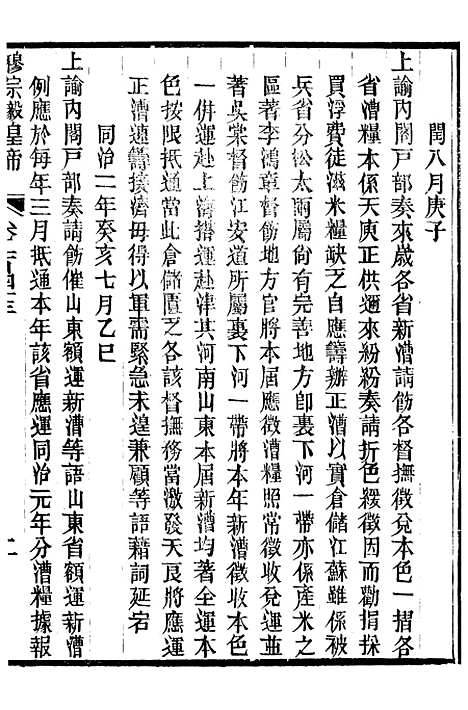 閏八月庚子
上諭內閣戶部奏來歲各省新漕請飭各督撫徵兌本色一摺各
省漕糧本係天庾正供邇來紛紛奏請折色緩徵因而勸捐採
買浮費徒滋米糧缺乏自應籌辦正漕以實倉儲江蘇雖係被
兵省分松太兩屬尙有完善地方卽裏下河一帶亦係產米之
區著李鴻章督飭地方官將本屆應徵漕糧照常徵收兌運並
著吳棠督飭江安道所屬裏下河一帶將本年新漕徵收本色
一併運赴上海搭運赴津其河南山東本屆新漕均著全運本
色按限抵通當此倉儲匱乏各該督撫務當激發天良將應運
正漕速籌接濟毋得以軍需緊急未遑兼顧等語藉詞延宕
同治二年癸亥七月乙巳
上諭內閣戶部奏請飭催山東額運新漕等語山東省額運新漕
例應於每年三月抵通本年該省應運同治元年分漕糧據報
穆宗毅皇帝
卷一百四十三
二